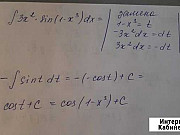 ∫3x²·sin(1-x³)dx = | замена
1-x³ = t
-3x²dx = dt
3x²dx = -dt
-∫sint dt = -(-cost)+C =
cost + C = cos(1-x³)+C
Интерн
Кабин